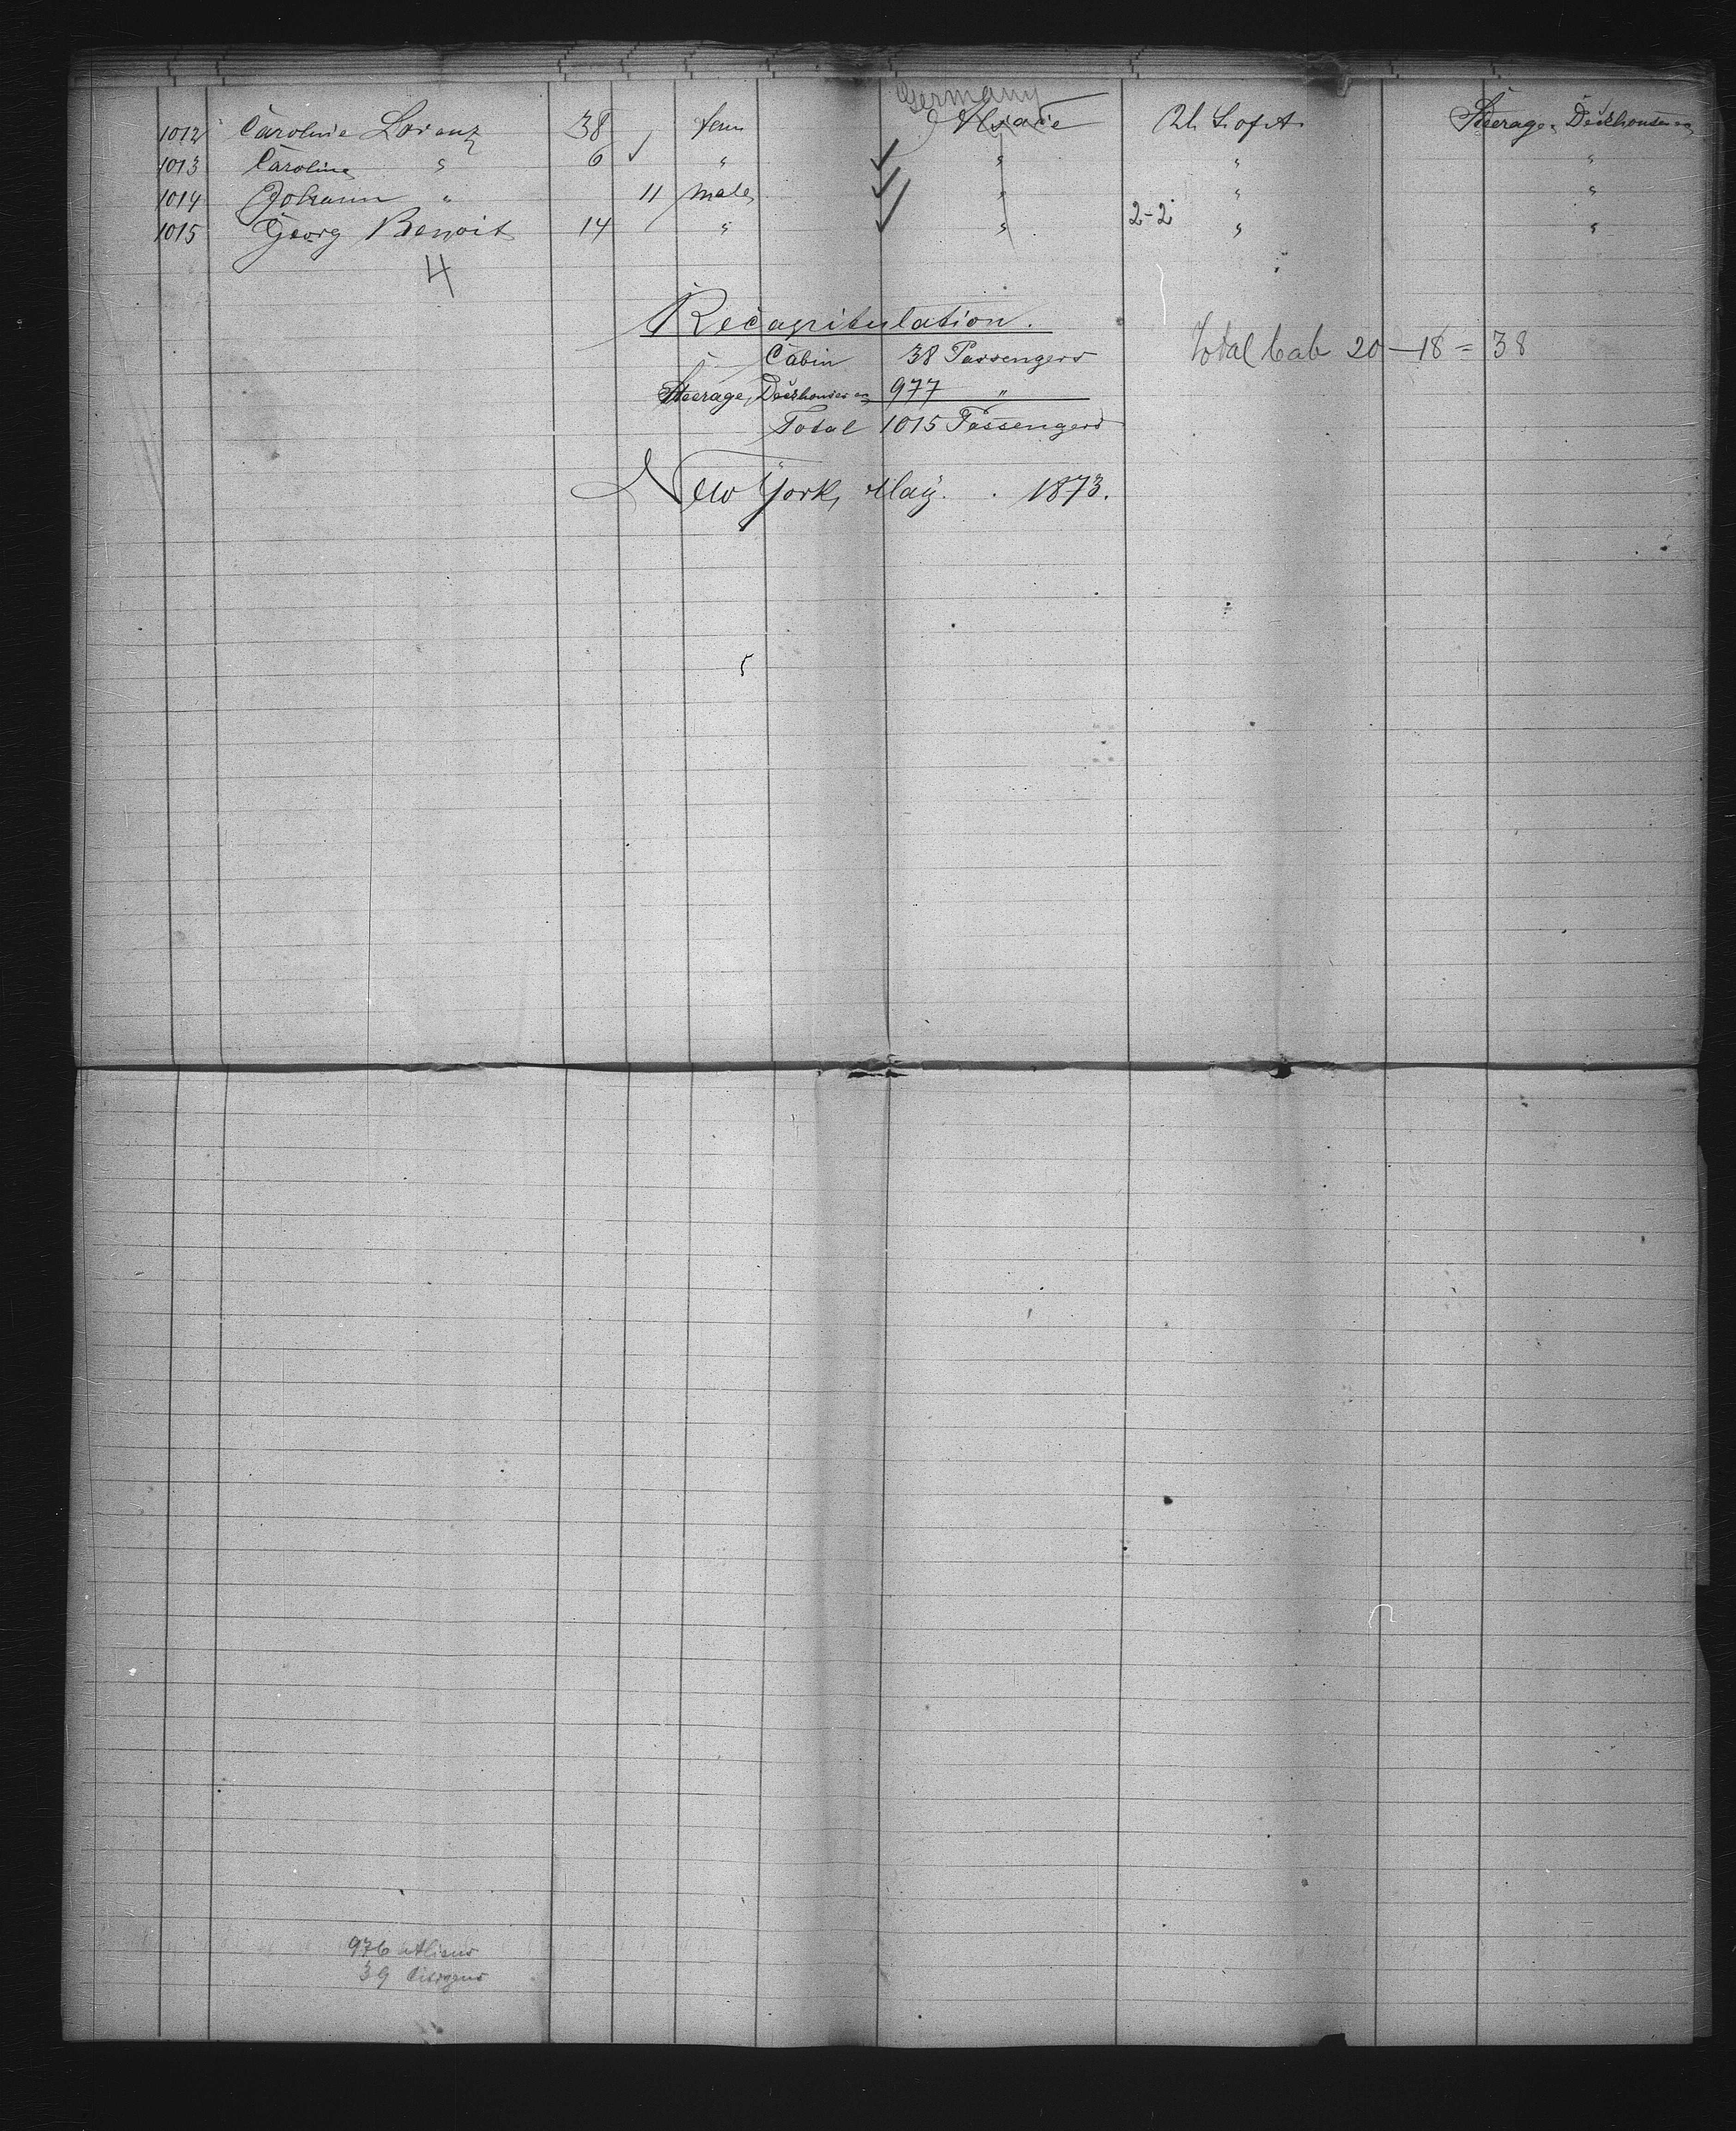 Germany
1012 Caroline Lorenz 38 fem Alsace U. S. of A. Steerage, Deckhouse
1013 Caroline " 6 ✓ " ✓ " " "
1014 Johann " 11 male ✓ " " "
1015 Georg Benoit 14 " ✓ " 2-2 " "
4
Recapitulation.
Cabin 38 Passengers
Total Cab 20 — 18 = 38
Steerage, Deckhouses 977 "
Total 1015 Passengers
New York, May. . 1873.
976 Aliens
39 Citizens